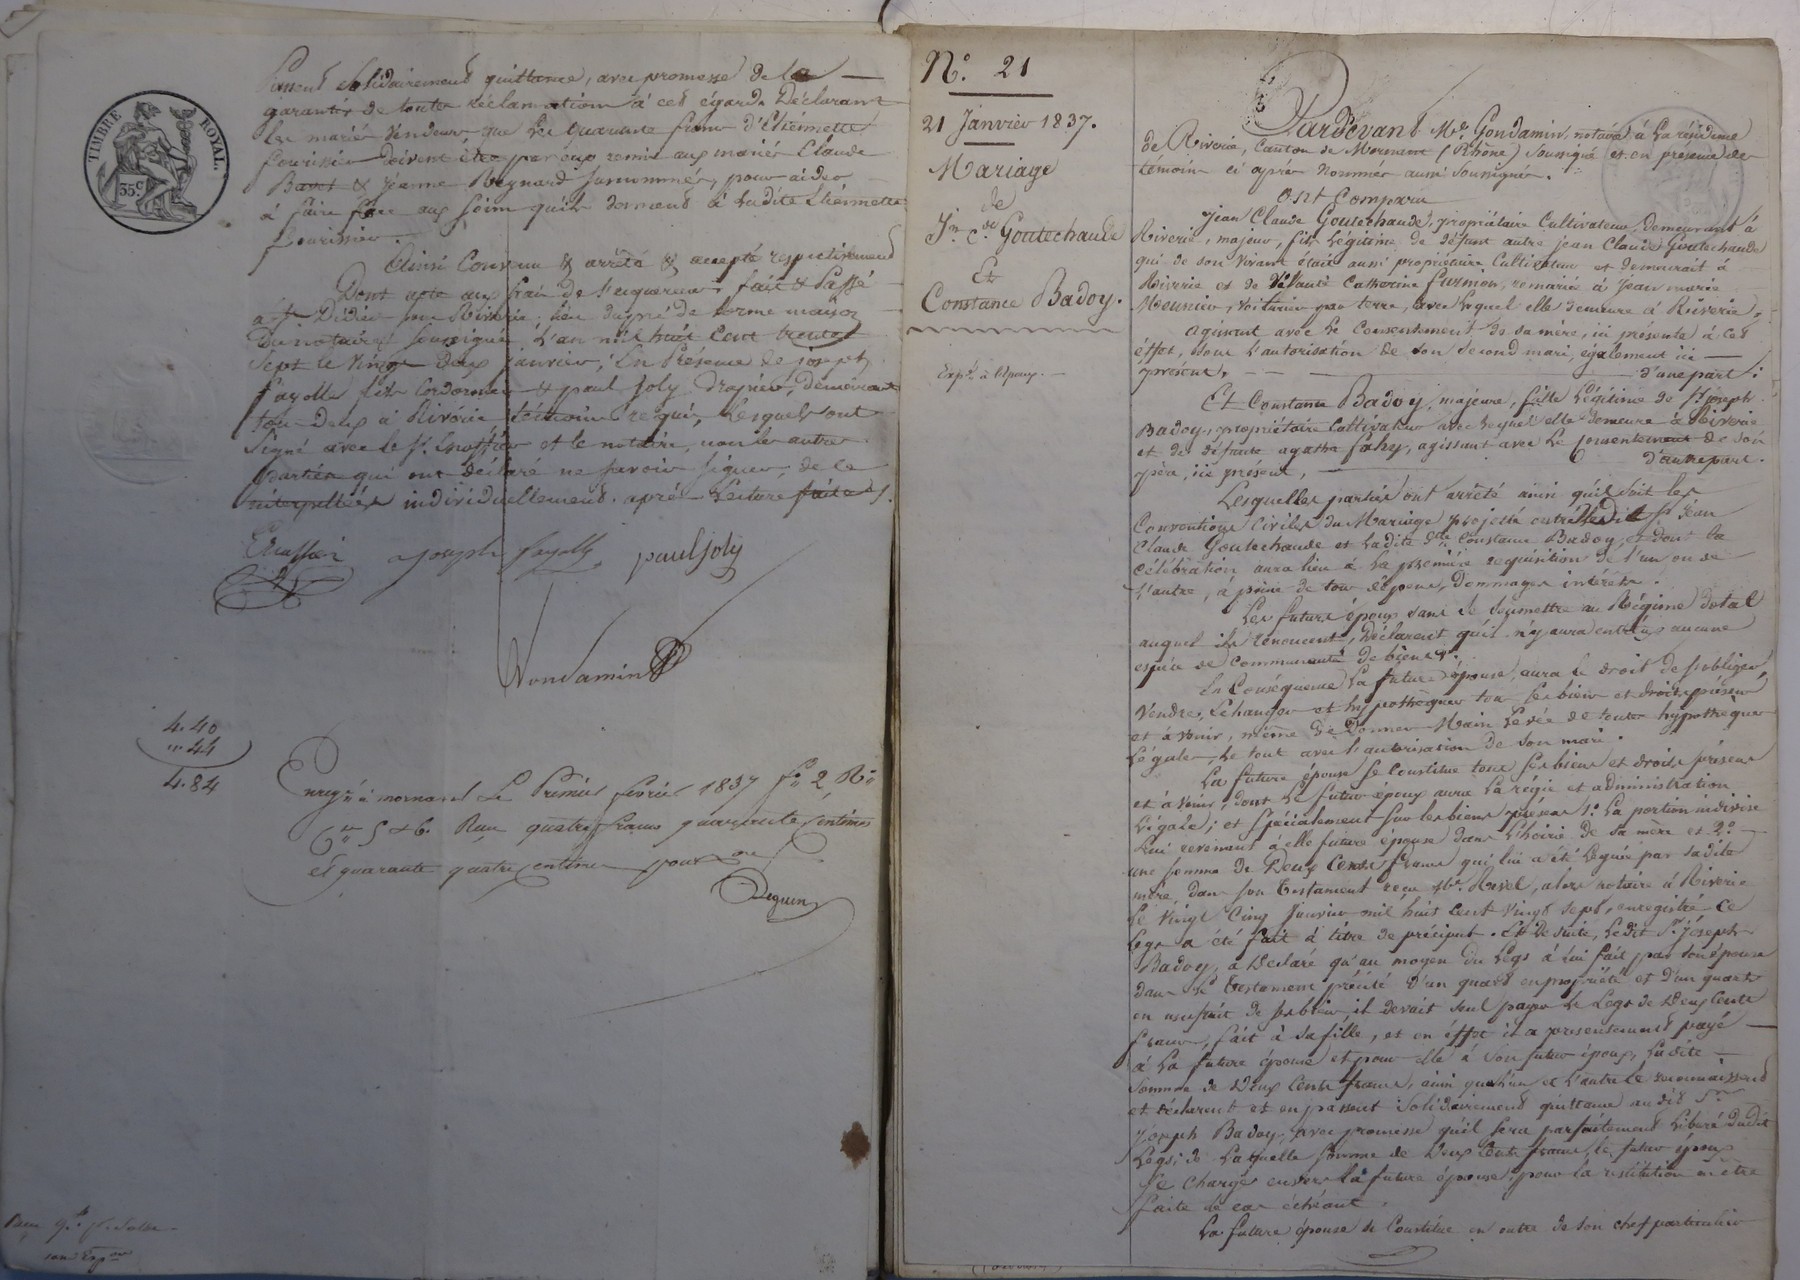 TIMBRE ROYAL.
35 c
solidairement quittance, avec promesse de la
garantir de toute réclamation à cet égard. Déclarant
les mariés vendeurs que les quarante francs d'Etiennette
fourissier doivent être par eux remis aux mariés Claude
Bavet & Jeanne Reynard surnommés, pour aider
à faire face aux soins qu'ils donnent à ladite Etiennette
fourissier.
Ainsi convenu & arrêté & accepté respectivement
Dont acte aux frais de l'acquéreur, fait & Passé
à St Didier sous Riverie, lieu du de terme maison
Du notaire soussigné, L'an mil huit cent trente
sept le vingt Deux janvier, En Présence de joseph
fayolle fils cordonnier & paul joly drapier, demeurant
tous deux à Riverie témoins requis, Lesquels ont
signé avec le sr. et le notaire, non les autres
parties qui ont déclaré ne savoir signer, de ce
interpellées individuellement après Lecture faite.
joseph fayolle paul joly
Gondamin
4.40
" 44
4.84
Enregtré à mornant Le Premier février 1837 fo 2, Ro
Ces 5 & 6. Reçu quatre francs quarante centimes
et quarante quatre centimes pour xme
Deguin
No. 21
21 Janvier 1837.
Mariage
de
Jn. Cde Goutechaude
Et
Constance Badoy.
Expée à l'époux.
Pardevant Me. Gondamin, notaire à la résidence
de Riverie, Canton de Mornant (Rhône) soussigné et en présence des
témoins ci après nommés aussi soussignés.
Ont Comparu
Jean Claude Goutechaude, propriétaire Cultivateur, demeurant à
Riverie, majeur, fils Légitime de défunt autre jean Claude Goutechaude
qui de son vivant était aussi propriétaire Cultivateur et demeurait à
Riverie et de vivante Catherine furnon, remariée à jean marie
Meunier, voiturier par terre, avec lequel elle demeure à Riverie,
agissant avec le Consentement de sa mère, ici présente à cet
effet, sous l'autorisation de son second mari, également ici
présent, d'une part;
Et Constance Badoy, majeure, fille Légitime de Sr. joseph
Badoy, propriétaire Cultivateur avec lequel elle demeure à Riverie
et de défunte agathe fahy, agissant avec le consentement de son
père, ici présent, d'autre part.
Lesquelles parties ont arrêté ainsi qu'il suit les
Conventions Civiles du Mariage projeté entre Ledit Sr. Jean
Claude Goutechaude et Ladite dlle Constance Badoy, & dont la
célébration aura lieu à la première réquisition de l'un ou de
l'autre, à peine de tous dépens, dommages intérêts.
Les futurs époux sans se soumettre au Régime dotal
auquel ils renoncent, Déclarent qu'il n'y aura entr'eux aucune
espèce de communauté de biens.
En Conséquence La future épouse, aura le droit de s'obliger,
vendre, Echanger et hypothéquer tous ses biens et droits présens
et à venir, même de Donner Main Levée de toutes hypothèques
Légales, le tout avec l'autorisation de son mari.
La future épouse se Constitue tous ses biens et droits présens
et à venir, dont le futur époux aura La régie et administration
Légale; et spécialement sur les biens présens 1o. La portion indivise
lui revenant à elle future épouse dans L'hoirie de sa mère et 2o.
une somme de Deux Cents francs qui lui a été Léguée par sadite
mère, dans son testament reçu Me. Ravel, alors notaire à Riverie
Le vingt Cinq Janvier mil huit Cent vingt sept, enregistré. Ce
Legs a été fait à titre de préciput. Et De suite, Ledit Sr. joseph
Badoy, a Déclaré qu'au moyen du Legs à Lui fait par son épouse
dans le testament précité d'un quart en propriété et d'un quart
en usufruit de ses biens, il devait seul payer le Legs de Deux Cents
francs, fait à sa fille, et en effet il a présentement payé
à La future épouse et pour elle à son futur époux, Ladite
Somme de Deux Cents francs, ainsi que l'un et l'autre le reconnaissent
et déclarent et en passent solidairement quittance au dit Sr.
Joseph Badoy, avec promesse qu'il sera parfaitement Libéré dudit
Legs; de Laquelle Somme de Deux Cents francs, le futur époux
se charge envers La future épouse, pour la restitution en être
faite le cas échéant.
La future épouse se Constitue en outre de son chef particulier